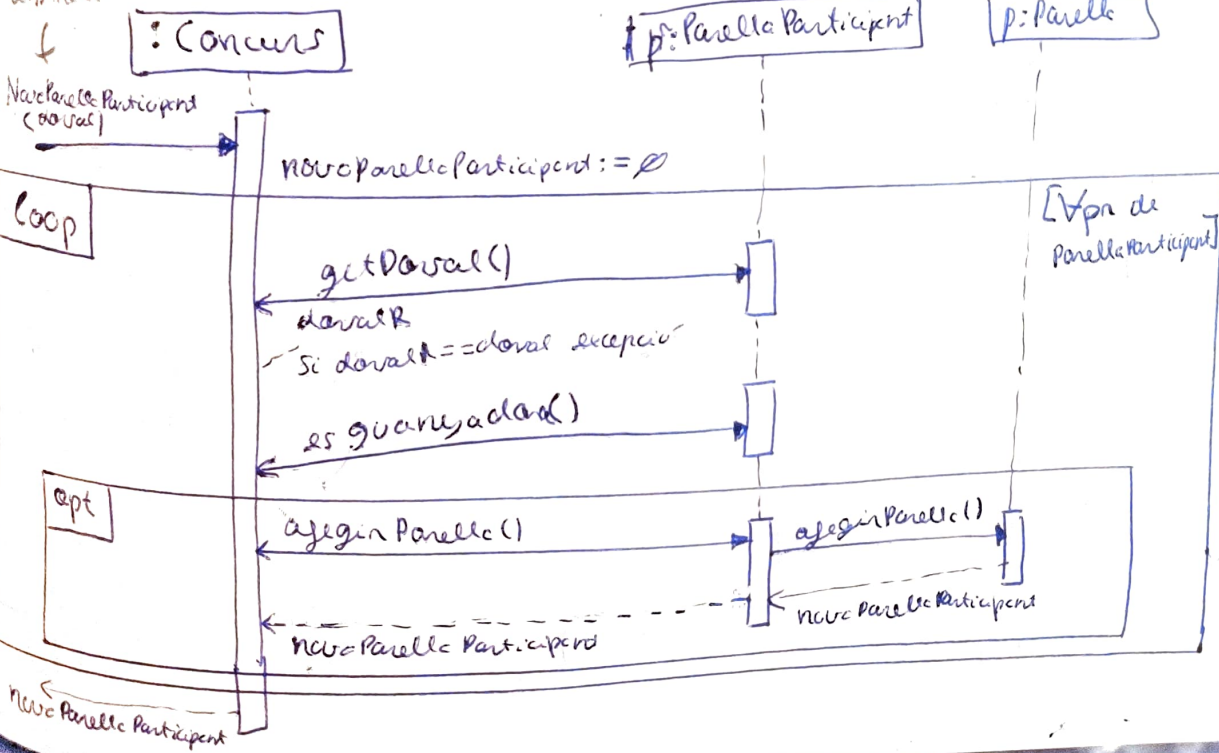 : Concurs
p:ParellaParticipent
p:Parella
NovaParellaParticipent
(dorsal)
novaParellaParticipent:=∅
loop
[∀pn de
ParellaParticipent]
getDorsal()
dorsalR
Si dorsalR==dorsal excepció
es guanyadora()
opt
afegirParella()
afegirParella()
novaParellaParticipent
novaParellaParticipent
novaParellaParticipent